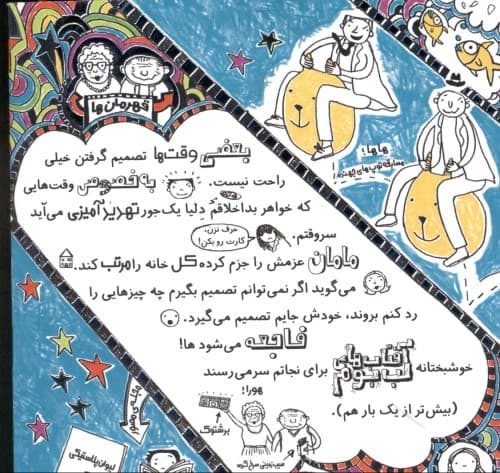 قهرمان‌ها
بعضی وقت‌ها تصمیم گرفتن خیلی
راحت نیست. به‌خصوص وقت‌هایی
که خواهر بداخلاقم دِلیا یک‌جور تهدیدآمیزی می‌آید
سروقتم.
حرف نزن، کارت رو بکن!
مامان عزمش را جزم کرده کل خانه را مرتب کند.
می‌گوید اگر نمی‌توانم تصمیم بگیرم چه چیزهایی را
رد کنم بروند، خودش جایم تصمیم می‌گیرد.
فاجعه می‌شود ها!
خوشبختانه آفتاب‌های لب بوم برای نجاتم سر می‌رسند
(بیش‌تر از یک بار هم).
هورا!
برشتوک
هاها!
مسابقه توپ‌های پرنده
مجله‌ی مصور
لیوان پلاستیکی